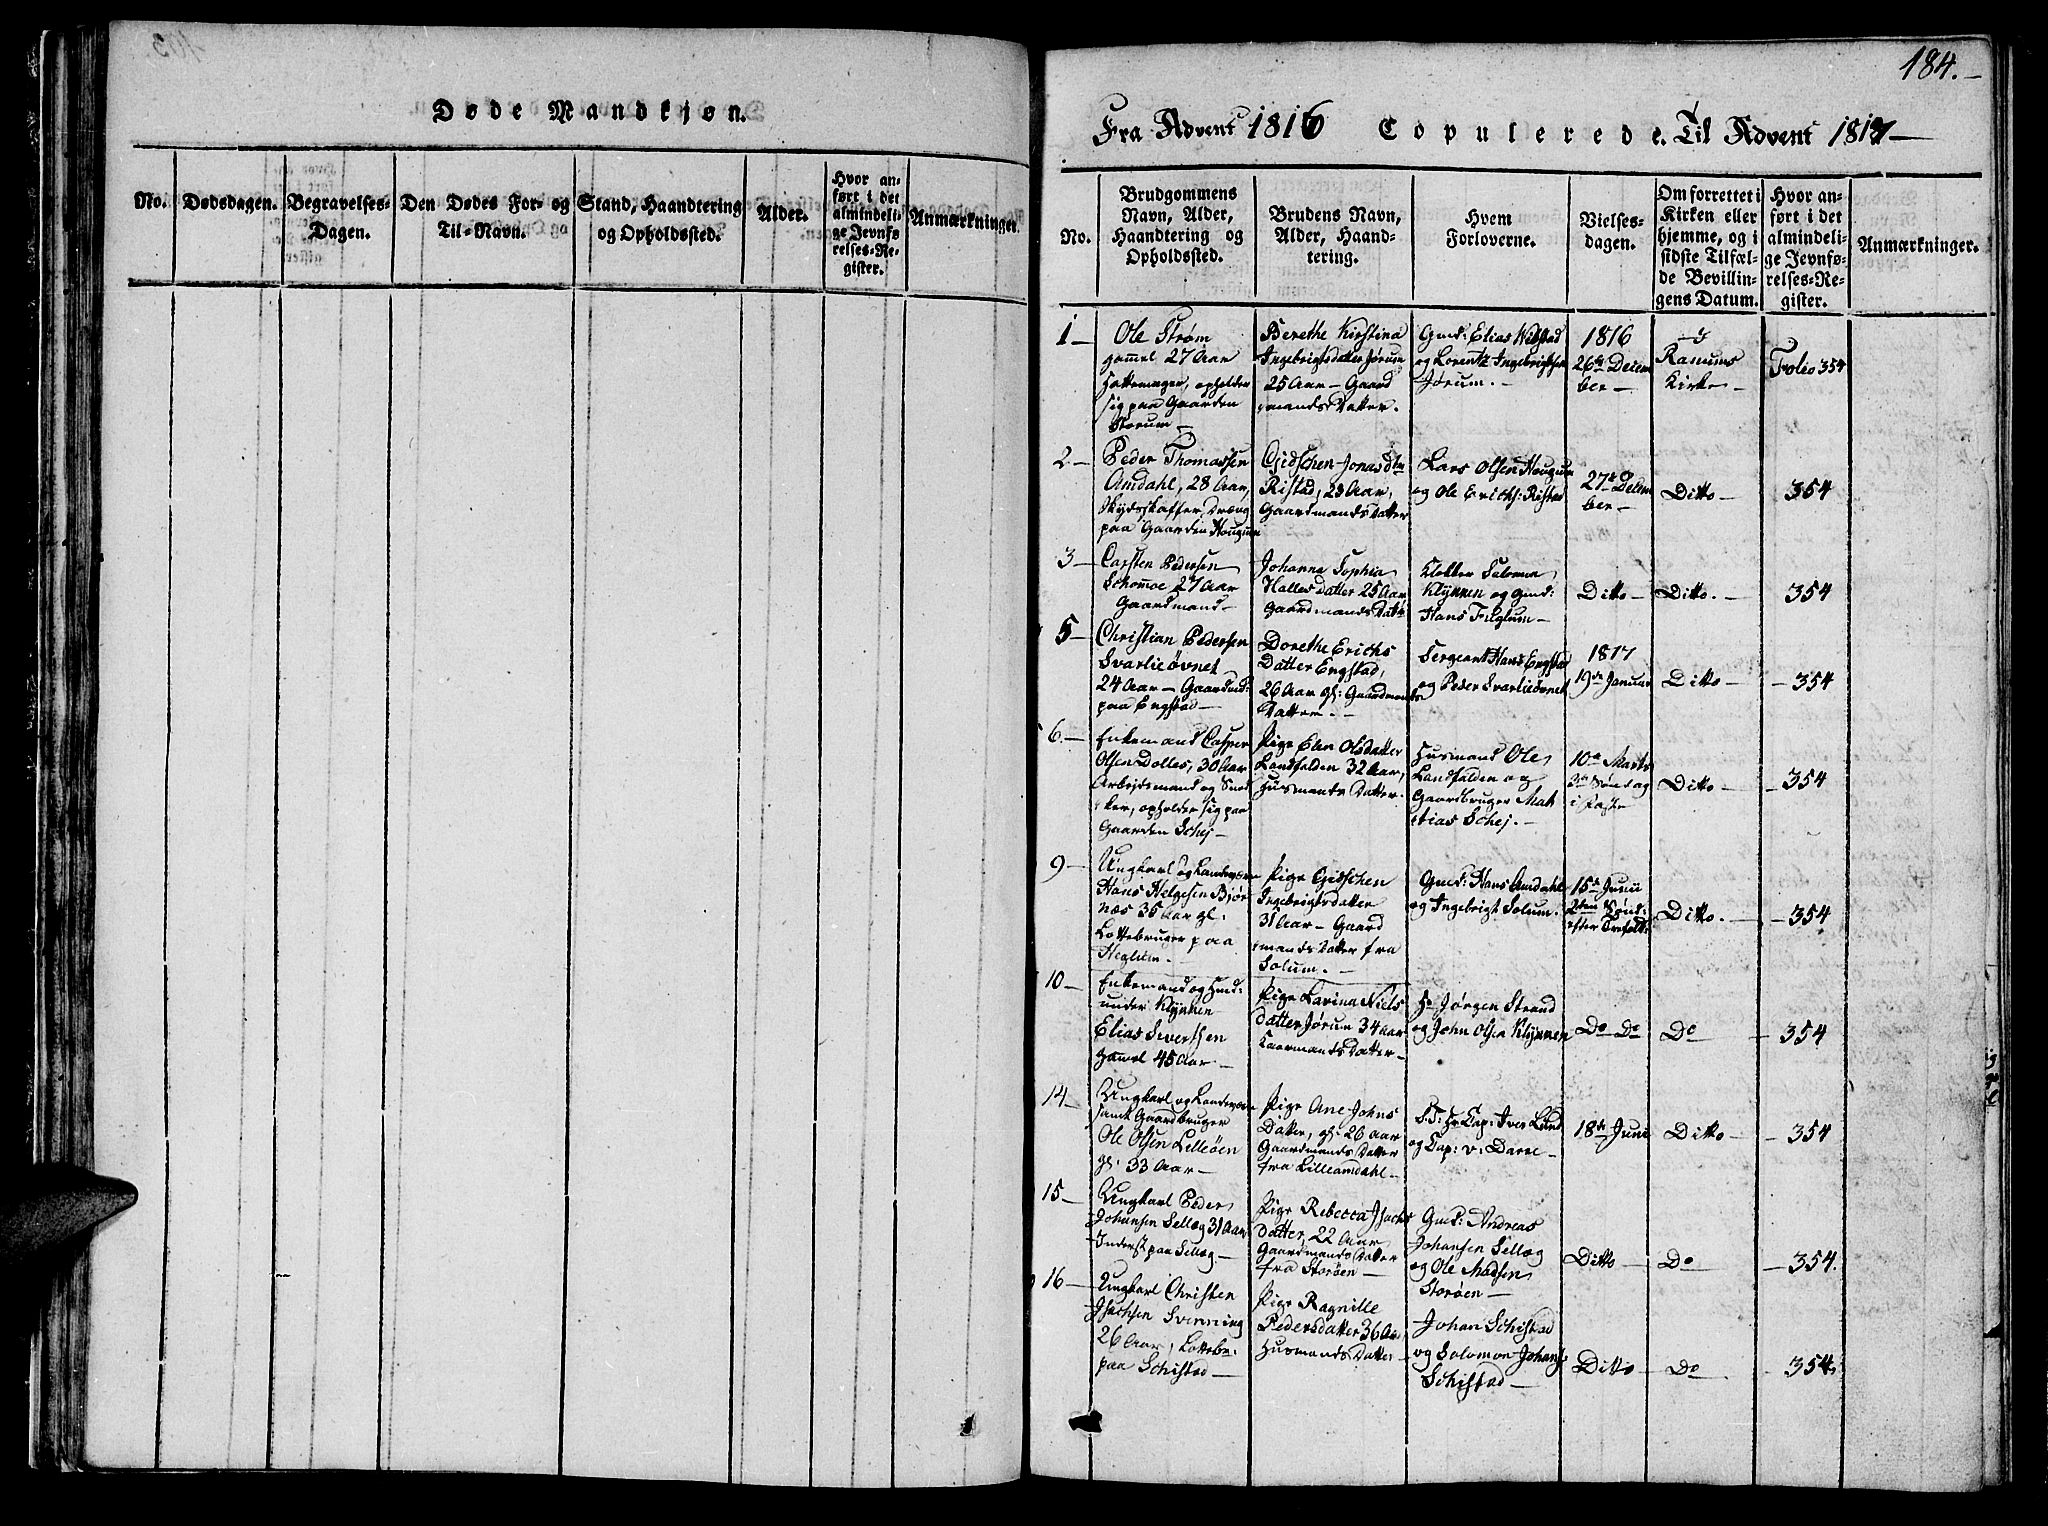 Døde Mandkjøn.
No.
Dødsdagen.
Begravelses-
Dagen.
Den Dødes For- og
Til-Navn.
Stand, Haandtering
og Opholdssted.
Alder.
Hvor an-
ført i det
almindeli-
ge Jevnfø-
relses-Re-
gister.
Anmærkninger.
184.-
Fra Advent 1816 Copulerede. Til Advent 1817-
No.
Brudgommens
Navn, Alder,
Haandtering og
Opholdssted.
Brudens Navn,
Alder, Haand-
tering.
Hvem
Forloverne.
Vielses-
dagen.
Om forrettet i
Kirken eller
hjemme, og i
sidste Tilfæl-
de Bevillin-
gens Datum.
Hvor an-
ført i det
almindeli-
ge Jevnfø-
relses-Re-
gister.
Anmærkninger.
1-
Ole Strøm
gammel 27 Aar
Hattemager, opholder
sig paa Gaarden
Storum-
Berethe Kirstina
Ingebrigtsdatter Jørum
25 Aar- Gaard
mands Datter.
Gmd: Elias Wibstad
og Lorentz Ingebrigtsen
Jørum.-
1816
26de Decem
ber-
I
Ranums
Kirke-
Folio 354
2-
Peder Thomassen
Amdahl, 28 Aar,
Skydsskaffer Dræng
paa Gaarden Hougum
Gidschen Jonasdtr
Ristad, 23 Aar,
Gaardmands Datter
Lars Olsen Hougum
og Ole Erichs: Ristad
27de Decem
ber-
Ditto-
354
3-
Carsten Pedersen
Skomoe 27 Aar
Gaardmand-
Johanna Sophia
Hallesdatter 25 Aar
Gaardmands Datr
Klokker Salomon
Klykken og Gmd:
Hans Fuglum-
Ditto-
Ditto.-
354
5-
Christian Pedersen
Svarlieøvnet
24 Aar- Gaardmd:
paa Engstad-
Dorethe Erichs
Datter Engstad,
26 Aar gl: Gaardmands
Datter.-
Sergeant Hans Engstad
og Peder Svarlieøvnet
1817
19de Januar
Ditto-
-354
6.-
Enkemand Casper
Olsen Dolles, 30 Aar
Arbeidsmand og Sned
ker, opholder sig paa
Gaarden Schej-
Pige Elen Olsdatter
Landfalden 32 Aar,
Husmands Datter.
Husmand Ole
Landfalden og
Gaardbruger Mat
tias Schej.-
10de Marts
3de Søndag
i Faste
Ditto-
-354
9-
Ungkarl og Landeværn
Hans Helgesen Bjør
næs 35 Aar gl:
Lottebruger paa
Heglum.-
Pige Gidschen
Ingebrigtsdatter
31 Aar- Gaard
mands Datter fra
Solum.-
Gmd: Hans Amdahl
og Ingebrigt Solum.
15de Junii
2den Sønd:
efter Trefold:
Ditto.-
-354
10-
Enkemand og Husmd:
under Klykken
Elias Sivertsen
Gammel 45 Aar-
Pige Larina Niels
datter Jørum 34 Aar
Gaarmands Datter-
Hr Jørgen Strand
og John Olsen Klykken
Do-Do
Do
-354
14-
Ungkarl og Landeværn
samt Gaardbruger
Ole Olsen Lilleøen
gl: 33 Aar-
Pige Ane Johns
Datter, gl: 26 Aar
Gaardmands Datter
fra Lilleamdahl-
S:T: Hr Cap: Iver Lund
og Cap: v: Darre-
18de Juni
Ditto-
-354
15-
Ungkarl Peder
Johansen Sellæg 31 Aar
Inderst paa Sellæg-
Pige Rebecca Isachs
datter, 22 Aar
Gaardmands Datter
fra Storøen-
Gmd: Andreas
Johansen Sellæg
og Ole Madsen
Storøen-
Ditto-
Do
-354.
16-
Ungkarl Christen
Isachsen Svenning
26 Aar, Lottebr:
paa Schistad-
Pige Ragnille
Pedersdatter 36 Aar
Husmands Datter
Johan Schistad
og Solomon Johans:
Schistad-
Ditto-
Do
-354.